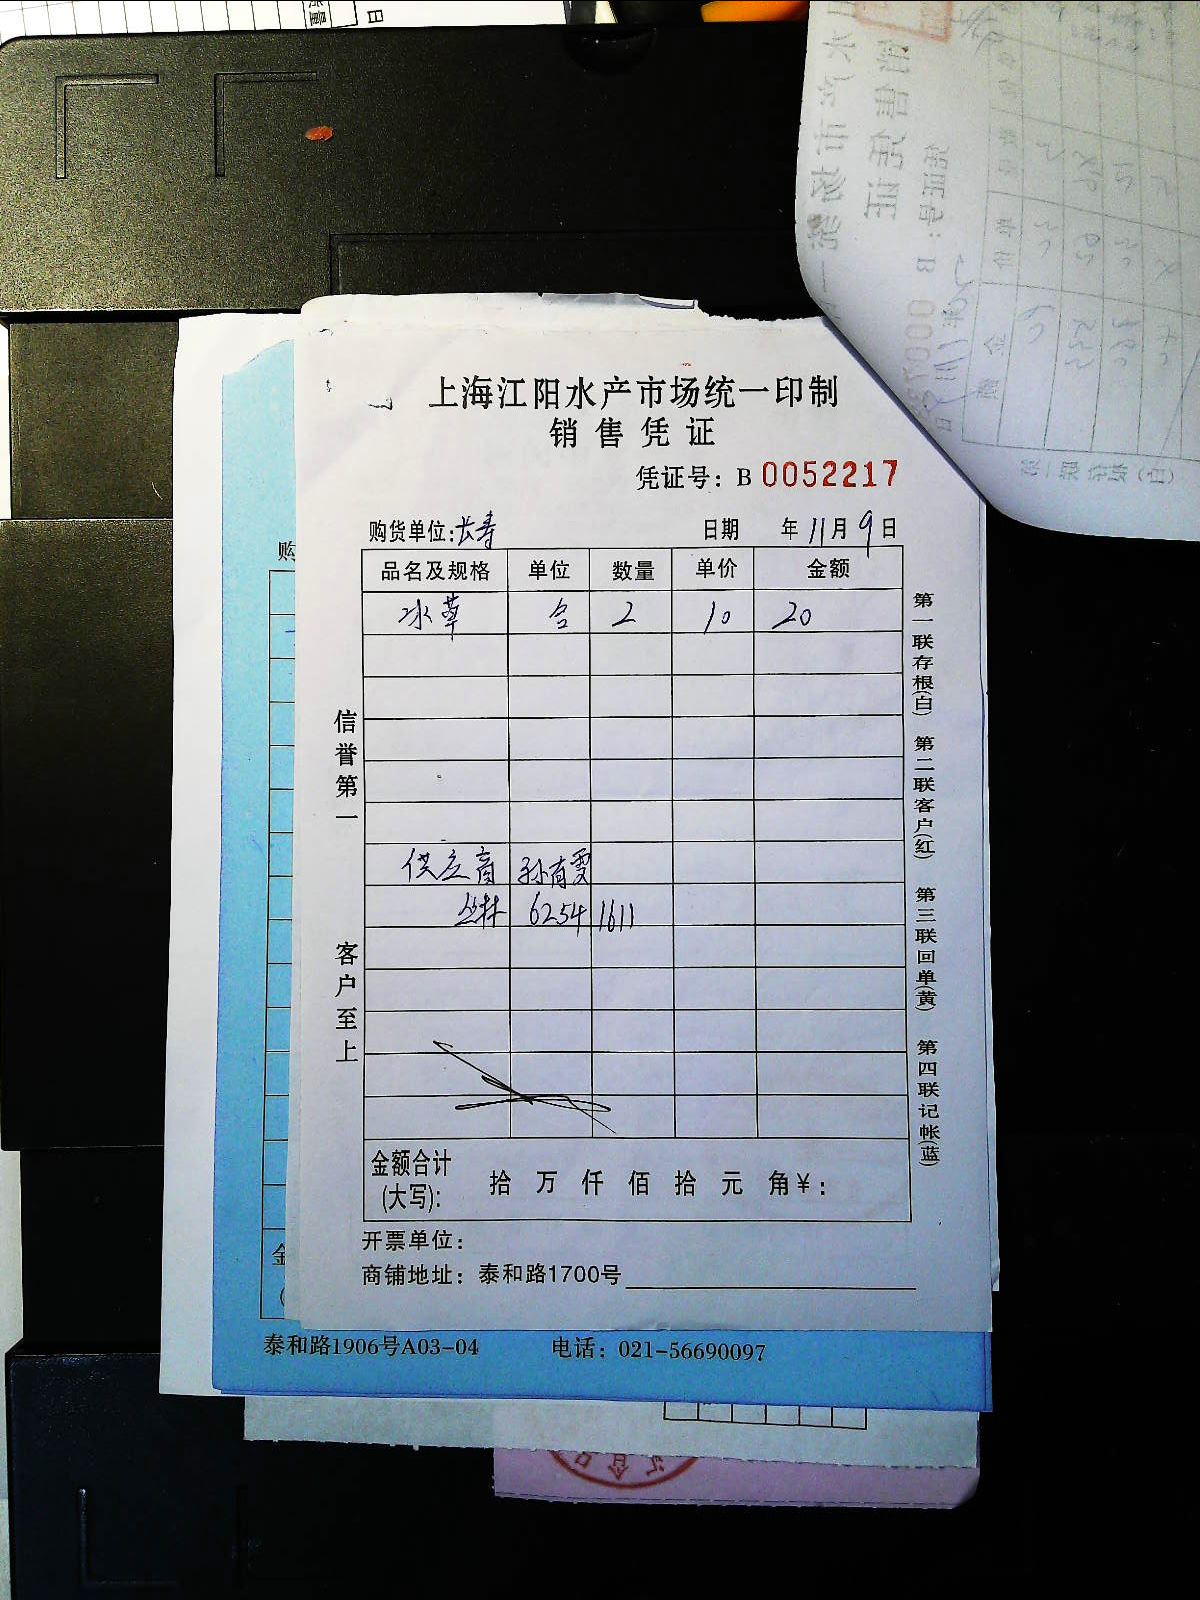 上海江阳水产市场统一印制
销售凭证
凭证号：B 0052217
购货单位：长寿 日期 年 11月 9日
品名及规格 单位 数量 单价 金额
水草 合 2 10 20
供应商 孙有雯
丛林 62541611
信誉第一
客户至上
第一联存根(白) 第二联客户(红) 第三联回单(黄) 第四联记帐(蓝)
金额合计(大写)： 拾 万 仟 佰 拾 元 角 ¥：
开票单位：
商铺地址：泰和路1700号
泰和路1906号A03-04 电话：021-56690097
购
金